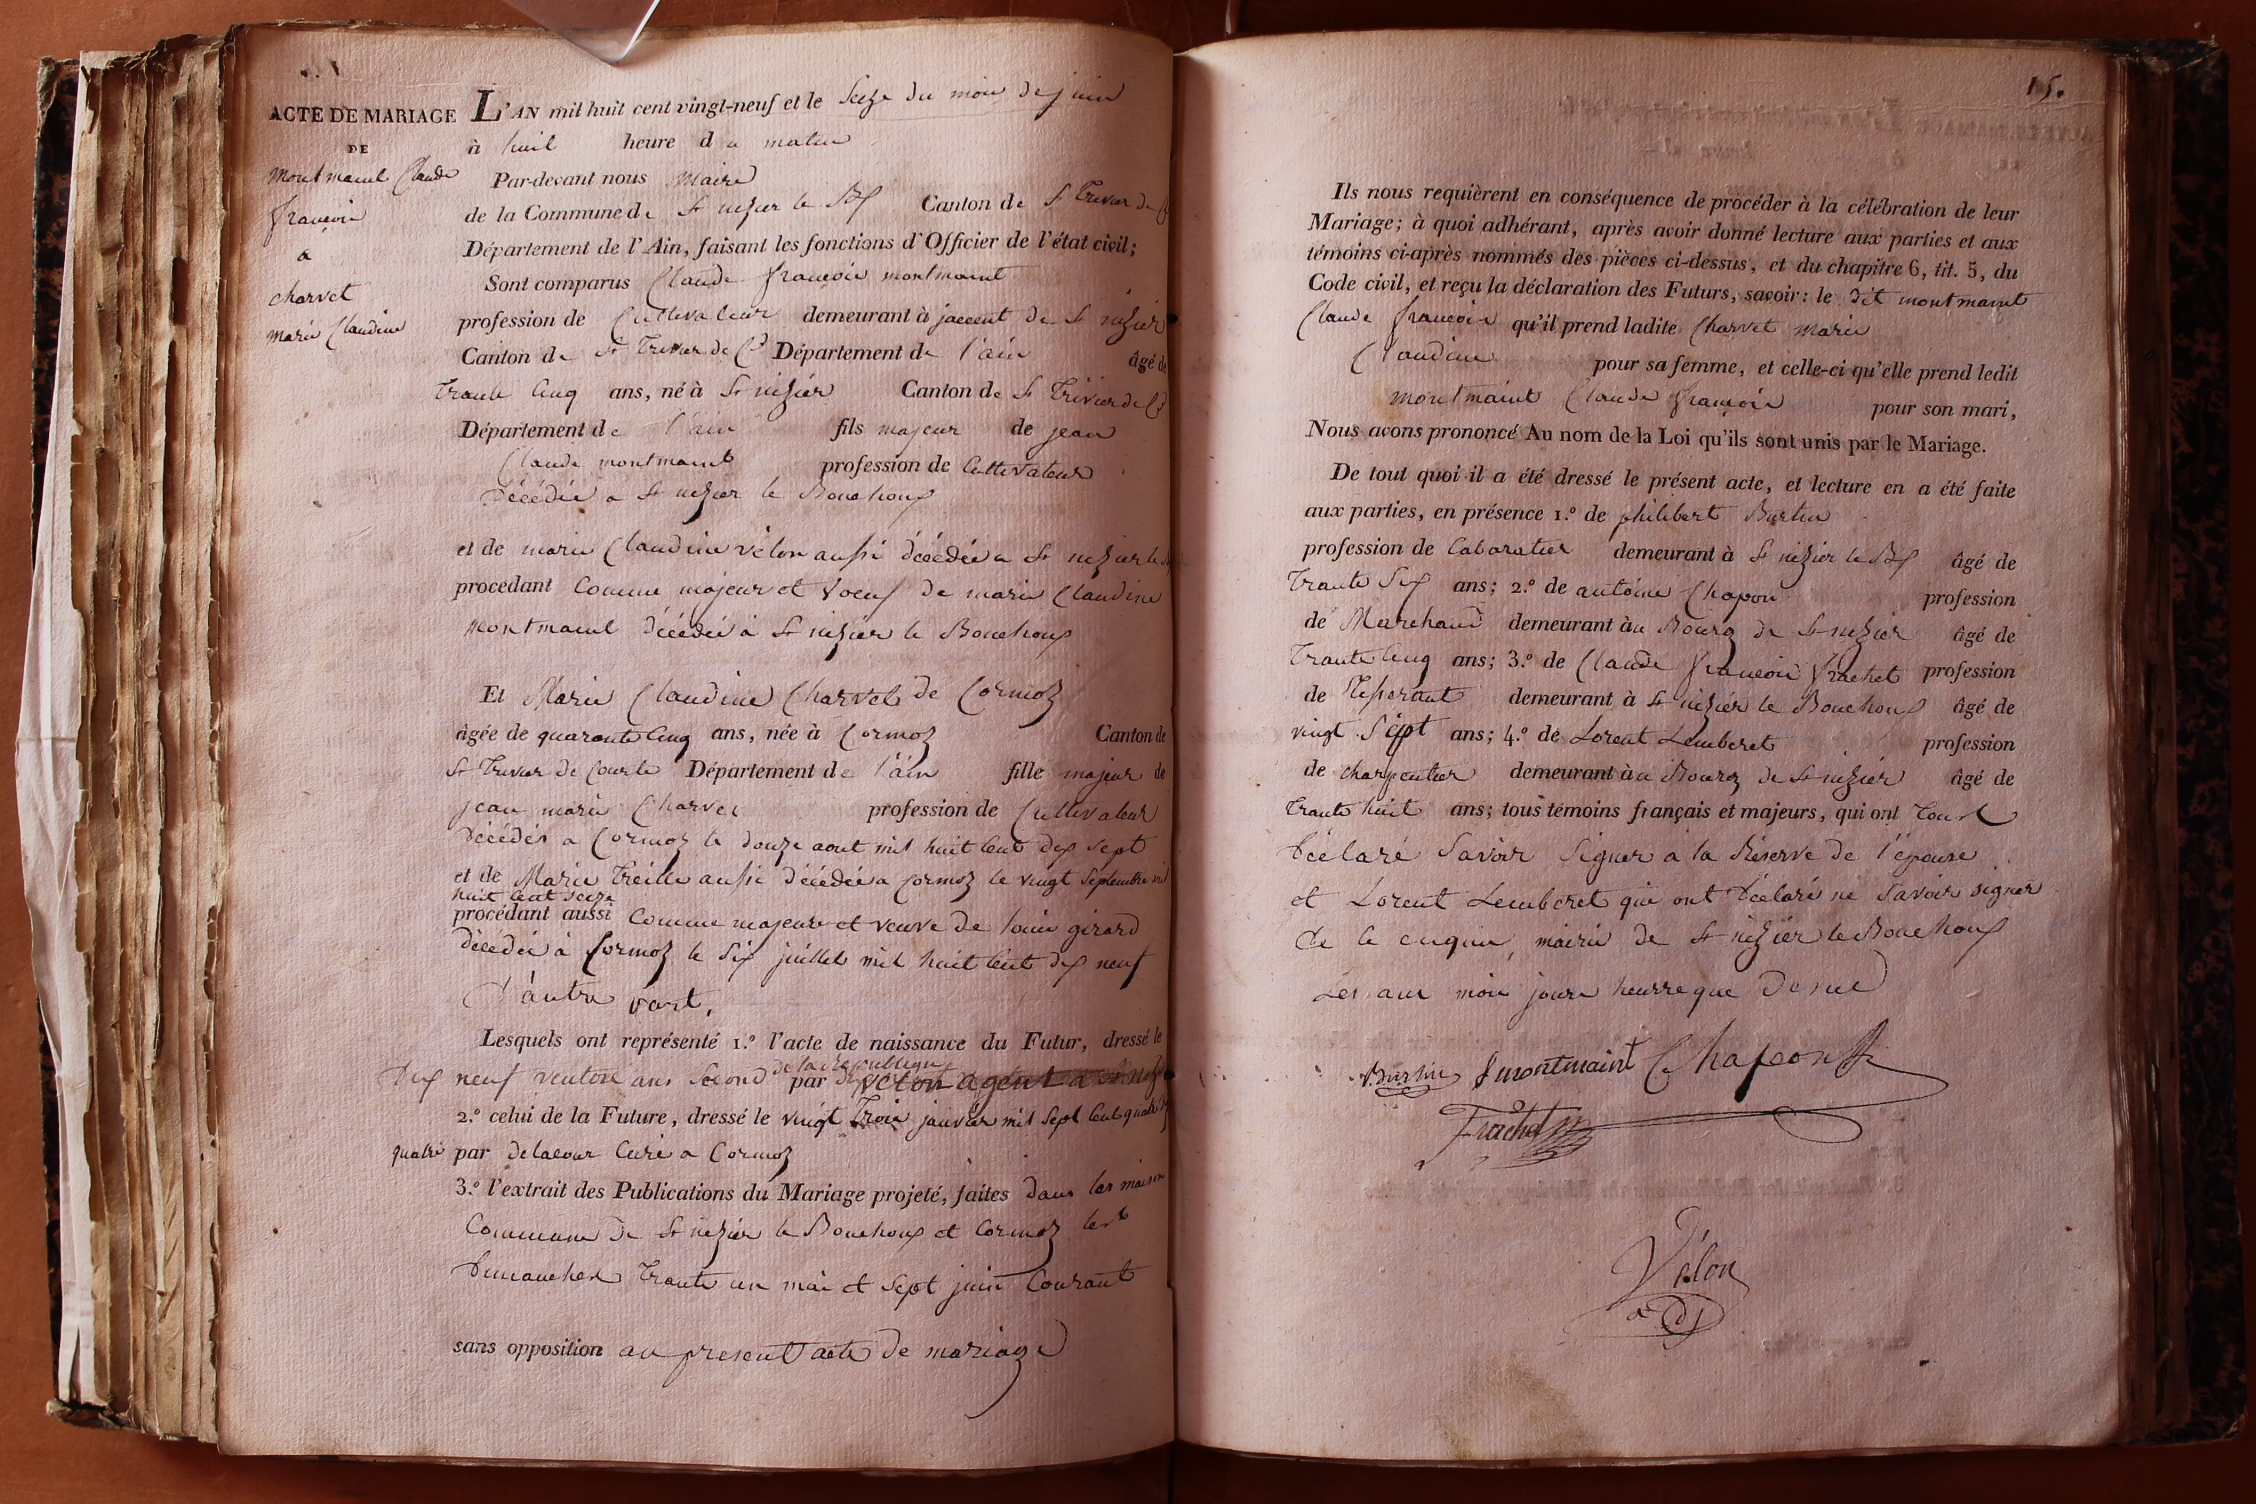 ACTE DE MARIAGE L'AN mil huit cent vingt-neuf et le Seize du moi de juin
DE
à huit heure du matin
montmaint Claude
françois
a
charvet
marie Claudine
Par-devant nous Maire
de la Commune de St nizier le Bx Canton de St Trivier de Cs
Département de l'Ain, faisant les fonctions d'Officier de l'état civil;
Sont comparus Claude françois montmaint
profession de Cultivateur demeurant à jaccent de St nizier
Canton de St Trivier de Cs Département de l'ain âgé de
Trante Cinq ans, né à St nizier Canton de St Trivier de Cs
Département de l'ain fils majeur de jean
Claude montmaint profession de Cultivateur
Décédée a St nizier le Bouchoux
et de marie Claudine vélon aussi décédée a St nizier le Bx
procédant Comme majeur et Voeuf de marie Claudine
montmaint Décédée à St nizier le Bouchoux
Et Marie Claudine Charvet de Cormoz
âgée de quarante Cinq ans, née à Cormoz Canton de
St Trivier de Courte Département de l'ain fille majeur de
jean marie Charvet profession de Cultivateur
Décédés a Cormoz le douze aout mil huit Cent dix Sept
et de Marie Treille aussi décédée a Cormoz le vingt Septembre mil
huit Cent Seize
procédant aussi Comme majeure et veuve de louis girard
Décédé à Cormoz le Six juillet mil huit Cent dix neuf
D'autre part,
Lesquels ont représenté 1.º l'acte de naissance du Futur, dressé le
de la republique
Dix neuf ventose ans Second par vélon agent a
2.º celui de la Future, dressé le vingt Trois janvier mil Sept Cent quatre
quatre par delacour Curé a Cormoz
3.º l'extrait des Publications du Mariage projeté, faites Dans las maison
Commune de St nizier le Bouchoux et Cormoz les
Dimanches Trante un mai et Sept juin Courant
sans opposition au present acte de mariage
15.
Ils nous requièrent en conséquence de procéder à la célébration de leur
Mariage; à quoi adhérant, après avoir donné lecture aux parties et aux
témoins ci-après nommés des pièces ci-dessus, et du chapitre 6, tit. 5, du
Code civil, et reçu la déclaration des Futurs, savoir: le dit montmaint
Claude françois qu'il prend ladite Charvet marie
Claudine pour sa femme, et celle-ci qu'elle prend ledit
montmaint Claude françois pour son mari,
Nous avons prononcé Au nom de la Loi qu'ils sont unis par le Mariage.
De tout quoi il a été dressé le présent acte, et lecture en a été faite
aux parties, en présence 1.º de philibert Burtin
profession de Cabaratier demeurant à St nizier le Bx âgé de
Trante Six ans; 2.º de antoine Chapon profession
de Marchand demeurant àu Bourg de St nizier âgé de
Trante Cinq ans; 3.º de Claude françois frachet profession
de Tisserant demeurant à St nizier le Bouchoux âgé de
vingt Sept ans; 4.º de Lorent Lemberet profession
de charpentier demeurant àu Bourg de St nizier âgé de
Trante huit ans; tous témoins français et majeurs, qui ont Tous
Déclaré Savoir Signer a la Réserve de l'épouse
et Lorent Lemberet qui ont Déclaré ne Savoir signer
de ce enquis, mairie de St nizier le Bouchoux
Les ans moi jours heurre que desue
P. Burtin f montmaint Chapon
Frachet
Vélon